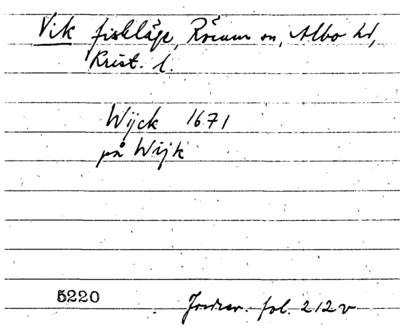 Vik fiskläge, Rörum sn, Albo hd,
Krist. l.
Wijck 1671
på Wijk
5220 Jordrev. fol. 212 v